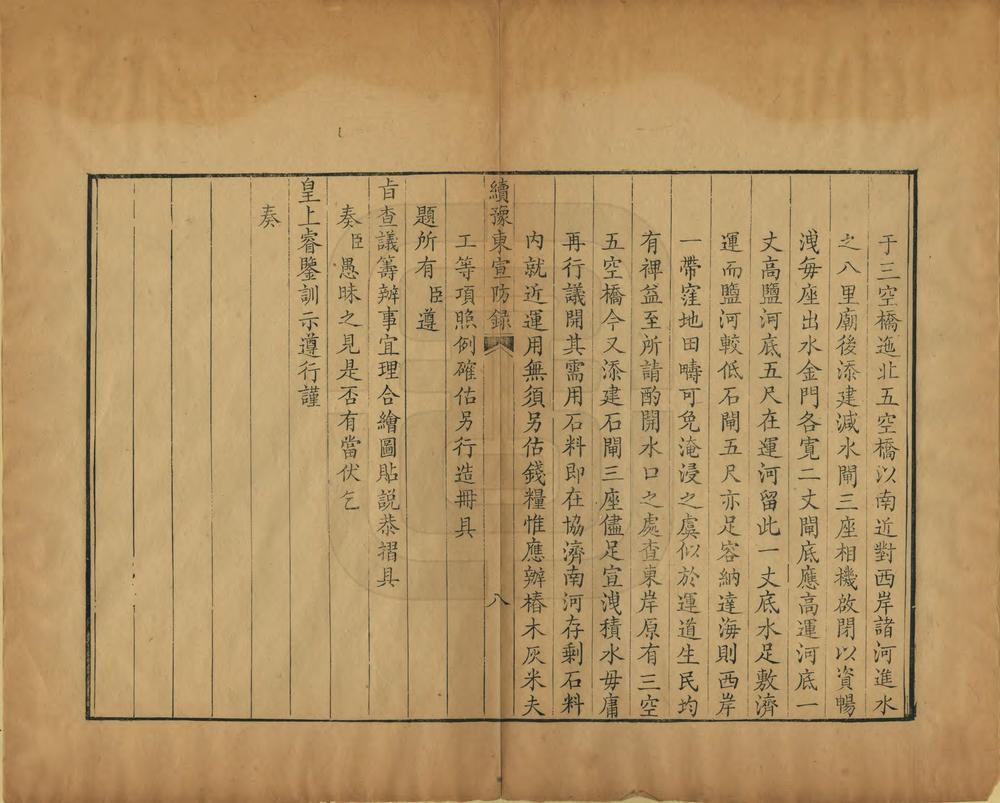 于三空橋迤北五空橋以南近對西岸諸河進水
之八里廟後添建減水閘三座相機啟閉以資暢
洩每座出水金門各寬二丈閘底應高運河底一
丈高鹽河底五尺在運河留此一丈底水足敷濟
運而鹽河較低石閘五尺亦足容納達海則西岸
一帶窪地田疇可免淹浸之虞似於運道生民均
有裨益至所請酌開水口之處查東岸原有三空
五空橋今又添建石閘三座儘足宣洩積水毋庸
再行議開其需用石料即在協濟南河存剩石料
內就近運用無須另估錢糧惟應辦樁木灰米夫
續豫東宣防録 八
工等項照例確估另行造冊具
題所有臣遵
旨查議籌辦事宜理合繪圖貼説恭摺具
奏臣愚昧之見是否有當伏乞
皇上睿鑒訓示遵行謹
奏